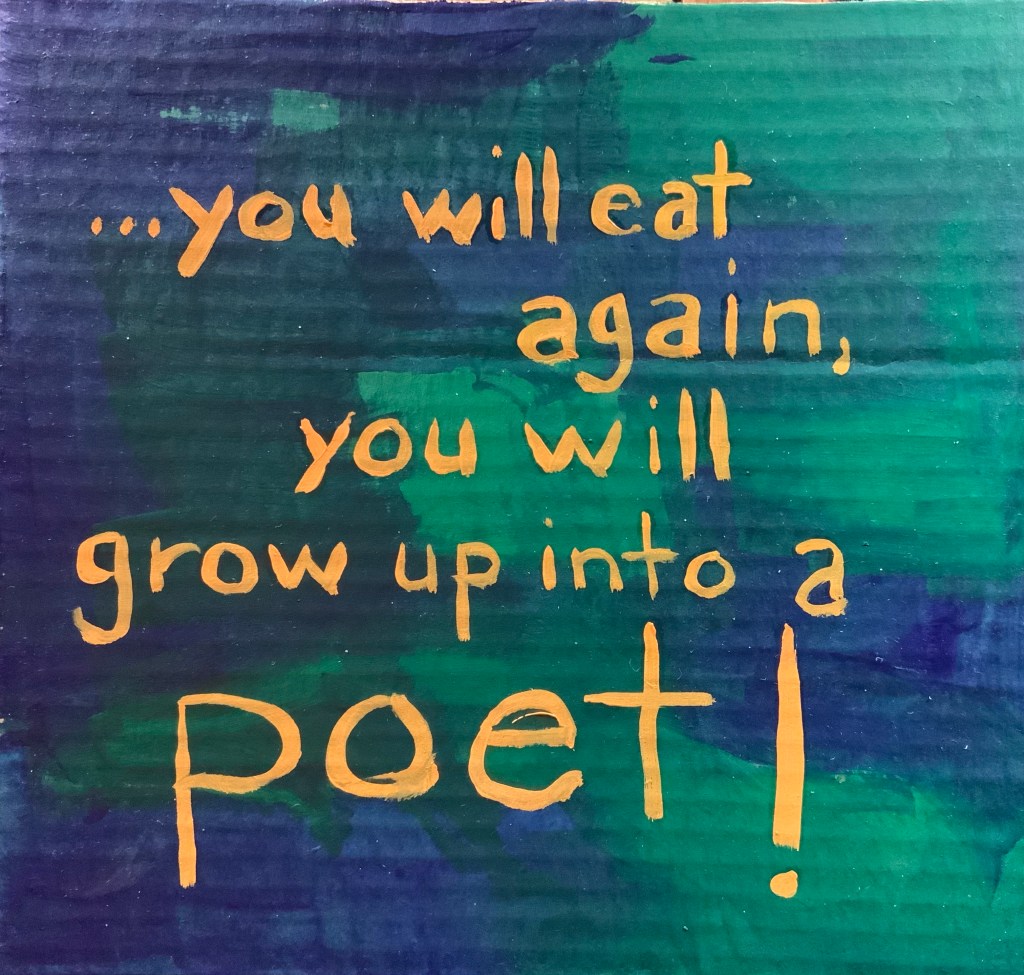 ...you will eat
again,
you will
grow up into a
poet!